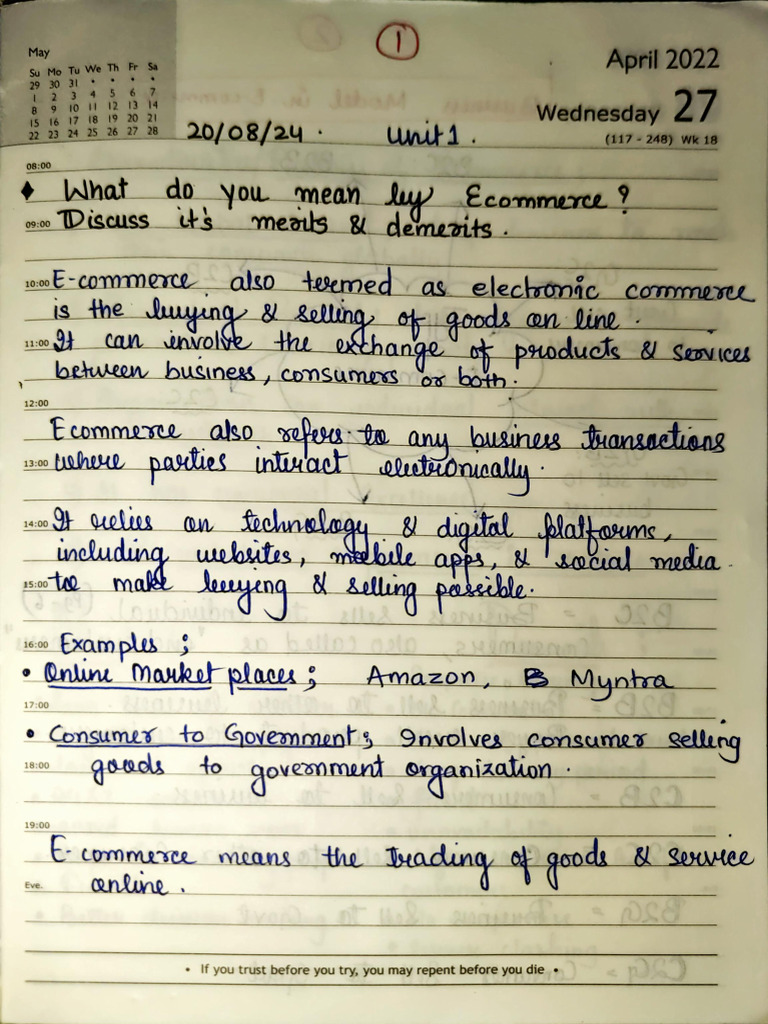 ①
May
Su Mo Tu We Th Fr Sa
29 30 31 • • • •
1 2 3 4 5 6 7
8 9 10 11 12 13 14
15 16 17 18 19 20 21
22 23 24 25 26 27 28
April 2022
Wednesday 27
(117 - 248) Wk 18
20/08/24. Unit 1.
08:00
♦ What do you mean by Ecommerce?
09:00 Discuss it's merits & demerits.
10:00 E-commerce also termed as electronic commerce
is the buying & selling of goods on line.
11:00 It can involve the exchange of products & services
between business, consumers or both.
12:00
Ecommerce also refers to any business transactions
13:00 where parties interact electronically.
14:00 It relies on technology & digital platforms,
including websites, mobile apps, & social media
15:00 to make buying & selling possible.
16:00 Examples ;
• Online Market places ; Amazon, B Myntra
17:00
• Consumer to Government ; Involves consumer selling
18:00 goods to government organization.
19:00
E-commerce means the trading of goods & service
Eve. online.
• If you trust before you try, you may repent before you die •